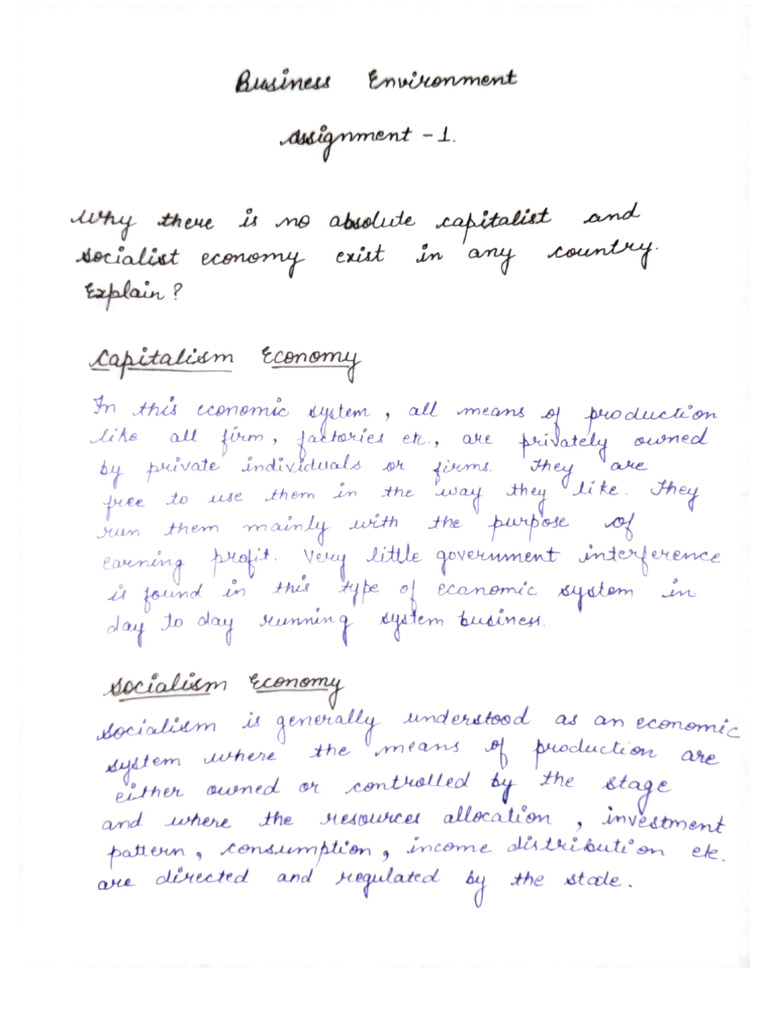 Business Environment
Assignment - 1.
Why there is no absolute capitalist and
socialist economy exist in any country.
Explain?
Capitalism Economy
In this economic system, all means of production
like all firm, factories etc., are privately owned
by private individuals or firms. They are
free to use them in the way they like. They
run them mainly with the purpose of
earning profit. Very little government interference
is found in this type of economic system in
day to day running system business.
Socialism Economy
Socialism is generally understood as an economic
system where the means of production are
either owned or controlled by the stage
and where the resources allocation, investment
pattern, consumption, income distribution etc.
are directed and regulated by the state.